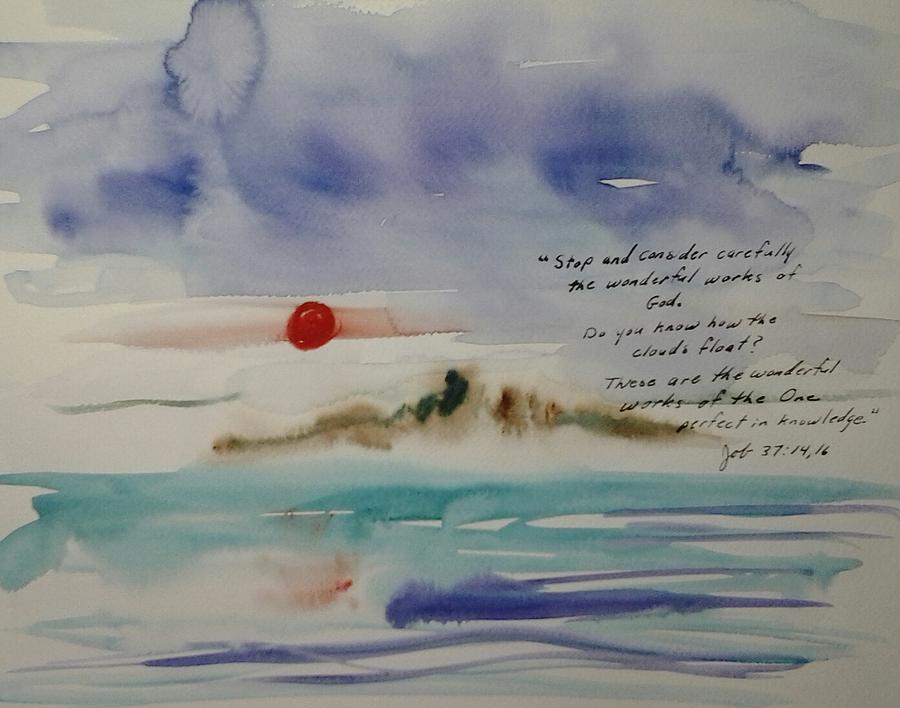 "Stop and consider carefully
the wonderful works of
God.
Do you know how the
clouds float?
These are the wonderful
works of the One
perfect in knowledge."
Job 37:14,16